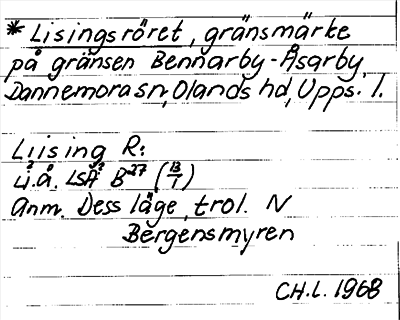 * Lisingsröret, gränsmärke
på gränsen Bennarby-Åsarby,
Dannemora sn, Olands hd, Upps. l.
Liising R:
u.å. LSA B27 (13/1)
Anm. Dess läge, trol. N
Bergensmyren
CH.L. 1968